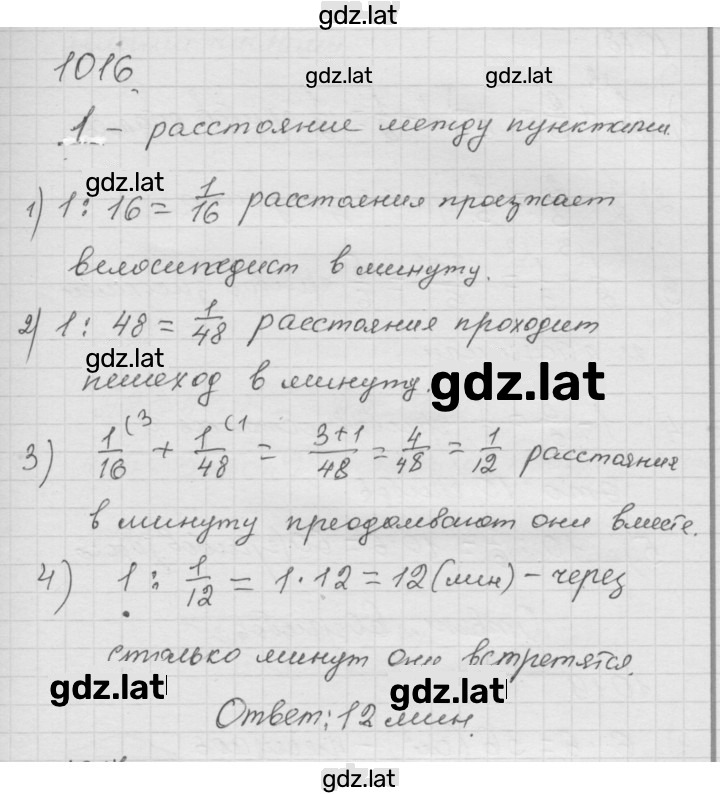 gdz.lat
1016.
gdz.lat gdz.lat
1 - расстояние между пунктами.
gdz.lat
1) 1 : 16 = 1/16 расстояния проезжает
велосипедист в минуту.
2) 1 : 48 = 1/48 расстояния проходит
gdz.lat
пешеход в минуту. gdz.lat
3) 1/16 (3 + 1/48 (1 = 3+1/48 = 4/48 = 1/12 расстояния
в минуту преодолевают они вместе.
4) 1 : 1/12 = 1 · 12 = 12 (мин) - через
столько минут они встретятся.
gdz.lat gdz.lat
Ответ: 12 мин.
gdz.lat